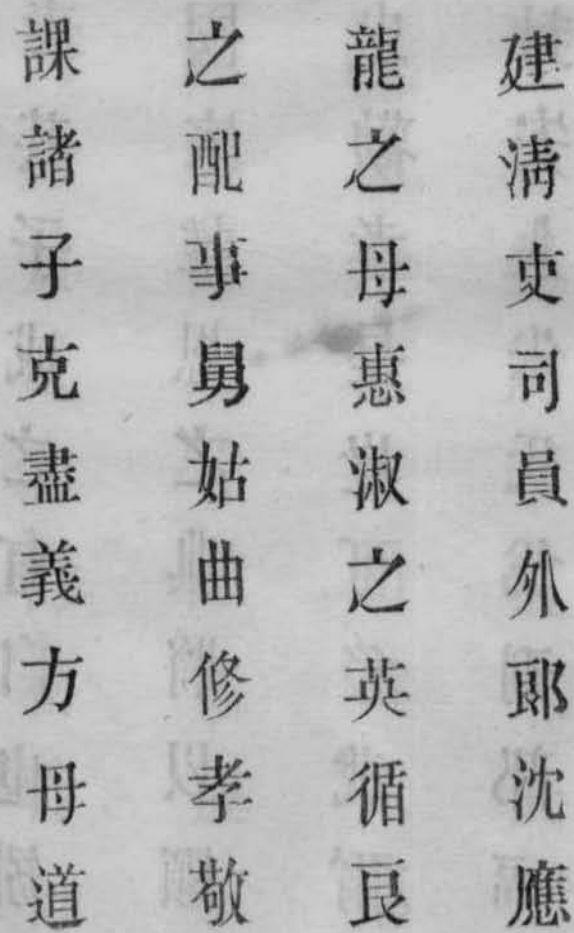 建清吏司員外郎沈應
龍之母惠淑之英循良
之配事舅姑曲修孝敬
課諸子克盡義方母道